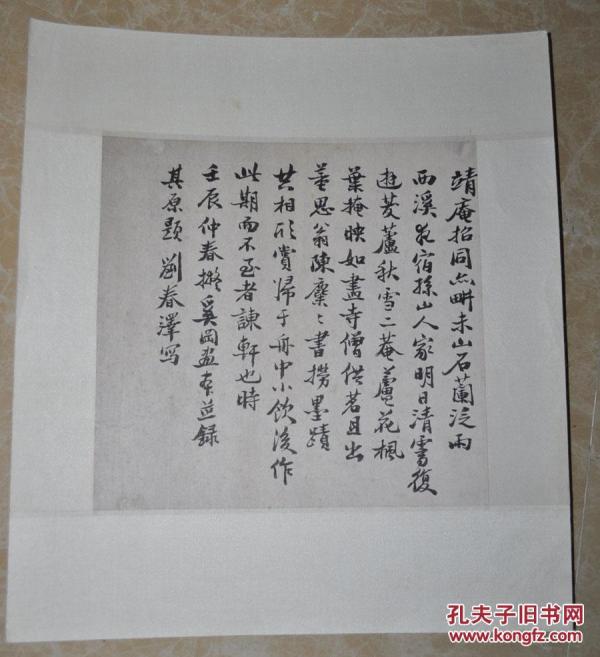 靖庵招同 畊未山石蘭泛雨
西溪夜宿孫山人家明日清霽復
遊菱蘆秋雪二菴蘆花楓
葉掩映如畫寺僧供茗且出
董思翁陳麋〻書 墨蹟
共相欣賞歸于舟中小飲後作
此期而不至者諫軒也時
壬辰仲春擬奚岡畫本並錄
其原題 劉春澤寫
孔夫子旧书网
www.kongfz.com